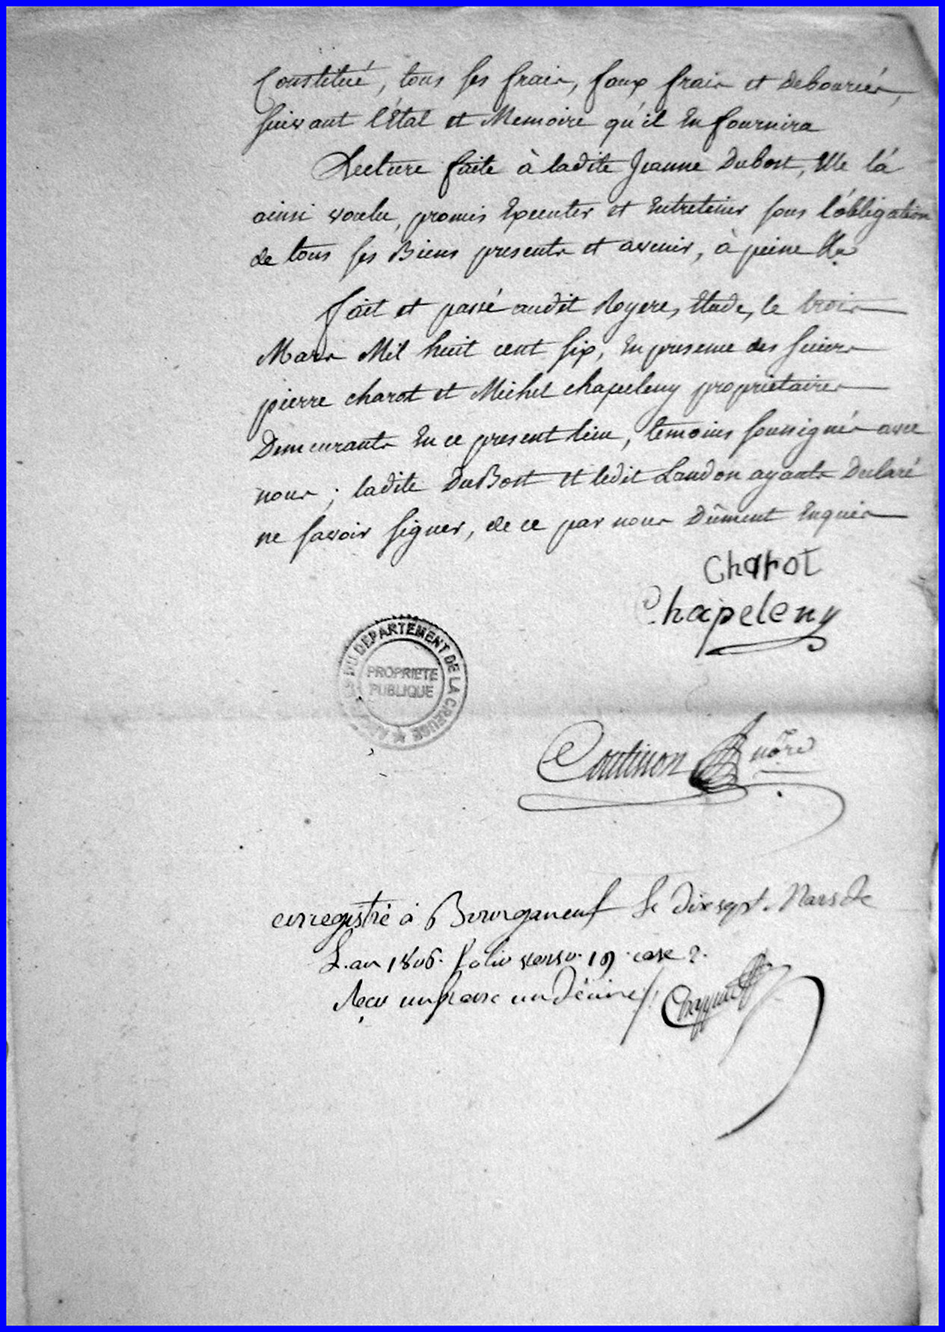 Constitué, tous ses frais, faux frais et debourcés,
suivant l'État et Memoire qu'il En fournira
Lecture faite à ladite Jeanne Dubost, Elle là
ainsi voulu, promis Executer et Entretenir sous l'obligation
de tous ses Biens presents et avenir, à peine &a
fait et passé audit Royere, Etude, le trois
Mars Mil huit cent six, En presence des sieurs
pierre charot et Michel chapeleny propriétaires
Demeurants En ce present lieu, temoins soussignés avec
nous ; ladite DuBost et ledit Landon ayants Declaré
ne savoir signer, de ce par nous Dûment Enquis
Charot
Chapeleny
DU DEPARTEMENT DE LA CREUSE
PROPRIETE
PUBLIQUE
Coutisson nõre
enregistré à Bourganeuf le dix sept Mars de
L'an 1806. folio verso 19 case 2.
Reçu un franc un Décime